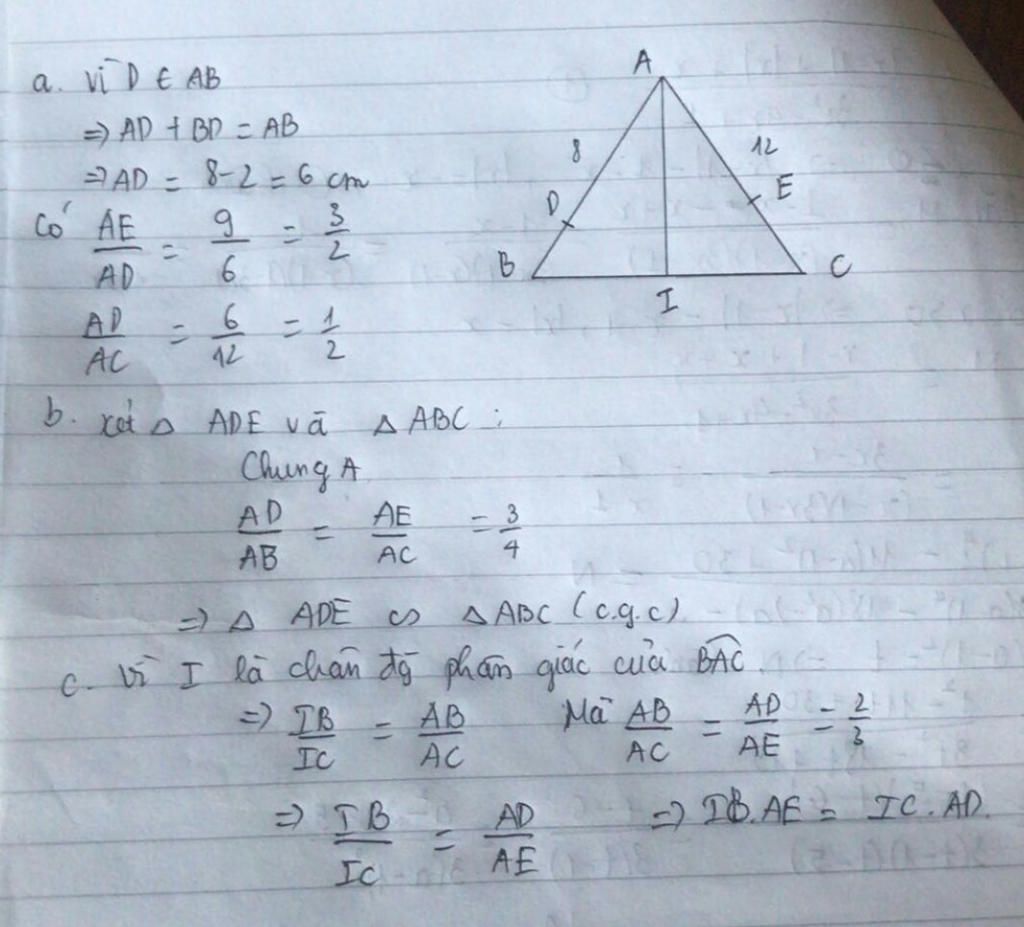 a. Vì D ∈ AB
⇒ AD + BD = AB
⇒ AD = 8-2 = 6 cm
Có AE/AD = 9/6 = 3/2
AD/AC = 6/12 = 1/2
A
8
12
D
E
B
C
I
b. xét △ ADE và △ ABC :
Chung A
AD/AB = AE/AC = 3/4
⇒ △ ADE ∽ △ ABC (c.g.c)
c. Vì I là chân đg phân giác của BAC
⇒ IB/IC = AB/AC Mà AB/AC = AD/AE = 2/3
⇒ IB/IC = AD/AE ⇒ IB.AE = IC.AD.